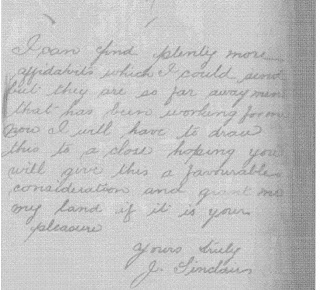 I can find plenty more
affidavits which I could send
but they are so far away men
that has been working for me
now I will have to draw
this to a close hoping you
will give this a favourable
consideration and grant me
my land if it is your
pleasure
Yours truly
J. Sinclair